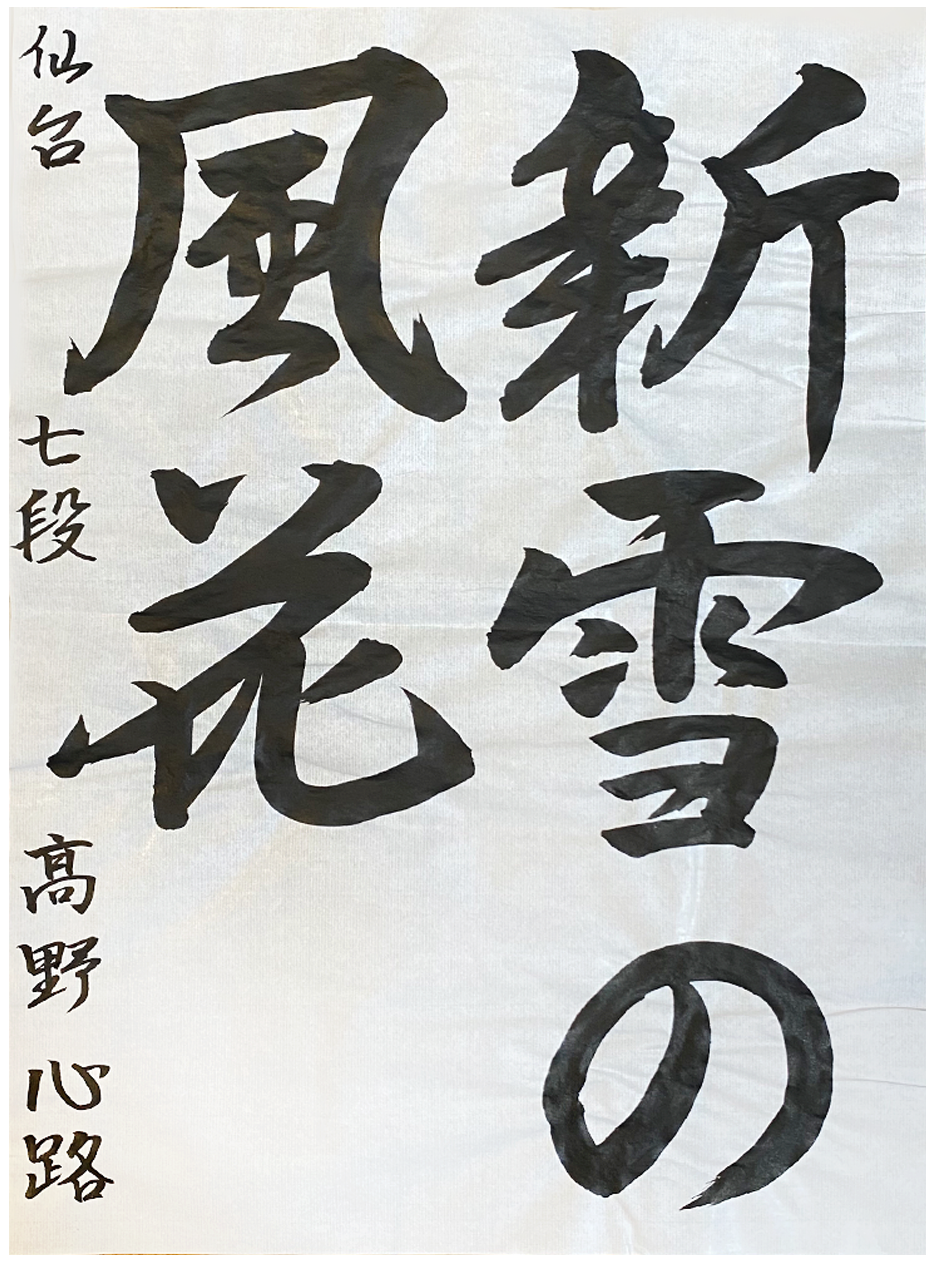 新雪の
風花
仙台 七段 高野 心路